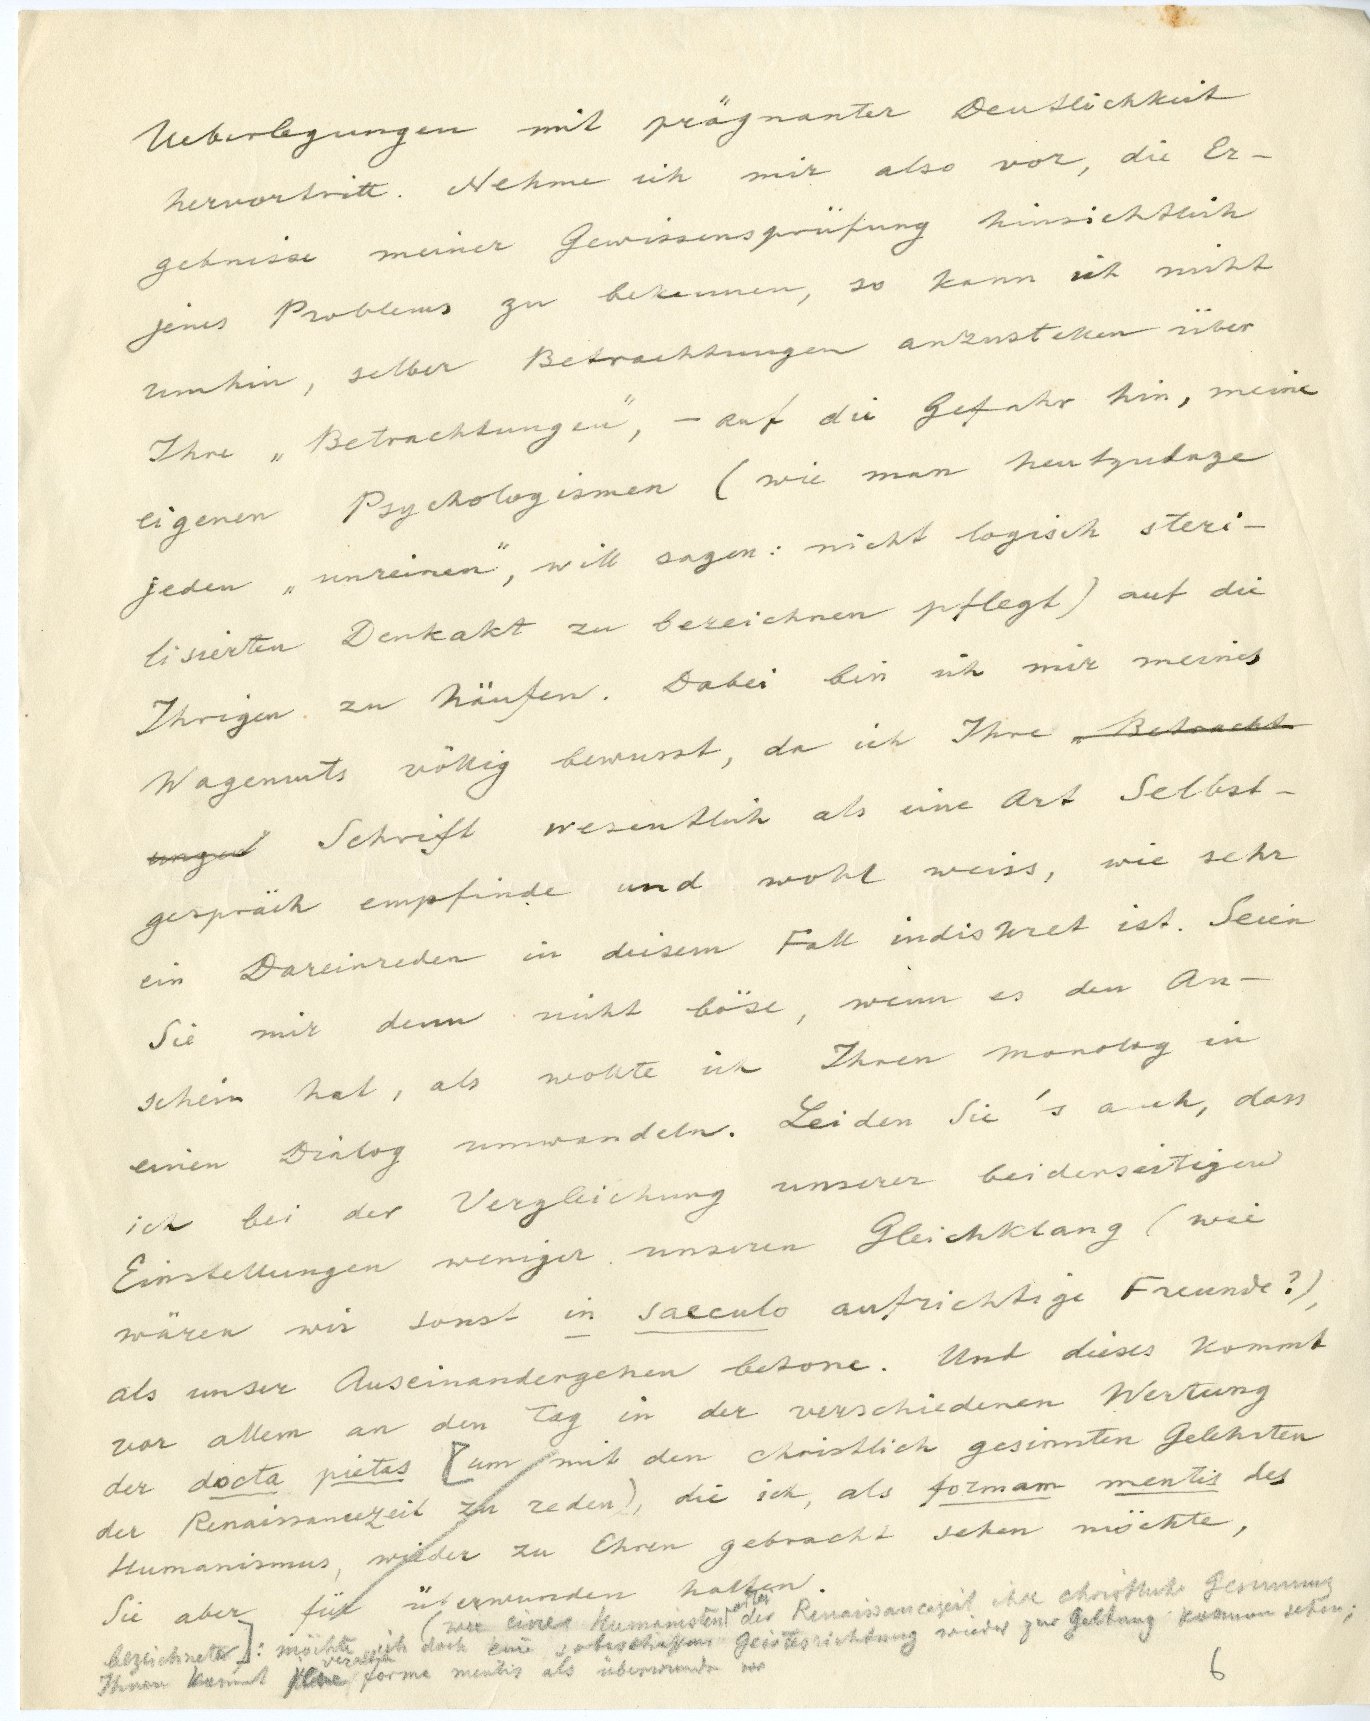 Ueberlegungen mit prägnanter Deutlichkeit
hervortritt. Nehme ich mir also vor, die Er-
gebnisse meiner Gewissensprüfung hinsichtlich
jenes Problems zu bekennen, so kann ich nicht
umhin, selber Betrachtungen anzustellen über
Ihre „Betrachtungen", - auf die Gefahr hin, meine
eigenen Psychologismen (wie man heutzutage
jeden „unreinen", will sagen: nicht logisch steri-
lisierten Denkakt zu bezeichnen pflegt) auf die
Ihrigen zu häufen. Dabei bin ich mir meines
Wagemuts völlig bewusst, da ich Ihre „Betracht
ungen Schrift wesentlich als eine Art Selbst-
gespräch empfinde und wohl weiss, wie sehr
ein Dareinreden in diesem Fall indiskret ist. Seien
Sie mir denn nicht böse, wenn es den An-
schein hat, als wollte ich Ihren Monolog in
einen Dialog umwandeln. Leiden Sie's auch, dass
ich bei der Vergleichung unserer beiderseitigen
Einstellungen weniger unseren Gleichklang (wie
wären wir sonst in saeculo aufrichtige Freunde?),
als unser Auseinandergehen betone. Und dieses kommt
vor allem an den Tag in der verschiedenen Wertung
der docta pietas [um mit den christlich gesinnten Gelehrten
der Renaissancezeit zu reden), die ich, als formam mentis des
Humanismus, wieder zu Ehren gebracht sehen möchte,
Sie aber für überwunden halten.
(wie einer Humanisten der Renaissancezeit ihre christliche Gesinnung
bezeichneten]: möchte ich doch eine so beschaffene Geistesrichtung wieder zur Geltung kommen sehen;
Ihnen kommt forma mentis als überwunden vor
6